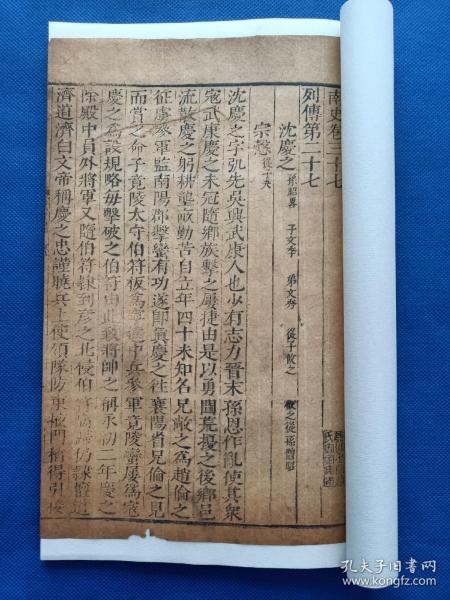 南史卷三十七
列傳第二十七
沈慶之 孫昭畧 子文季 弟文秀 從子攸之 攸之從孫僧昭
宗慤 從子夬
沈慶之字弘先吳興武康人也少有志力晉末孫恩作亂使其衆
寇武康慶之未冠隨鄉族擊之屢捷由是以勇聞荒擾之後鄉邑
流散慶之躬耕壟畝勤苦自立年四十未知名兄敞之為趙倫之
征虜參軍監南陽郡擊蠻有功遂即真慶之往襄陽省兄倫之見
而賞之命子竟陵太守伯符板為寧遠中兵參軍竟陵蠻屢為寇
慶之為設規略每擊破之伯符由此致將帥之稱永初二年慶之
除殿中員外將軍又隨伯符隸到彥之北侵伯符病歸仍隸檀道
濟道濟白文帝稱慶之忠謹曉兵上使領隊防東掖門稍得引接
孔夫子旧书网
www.kongfz.com